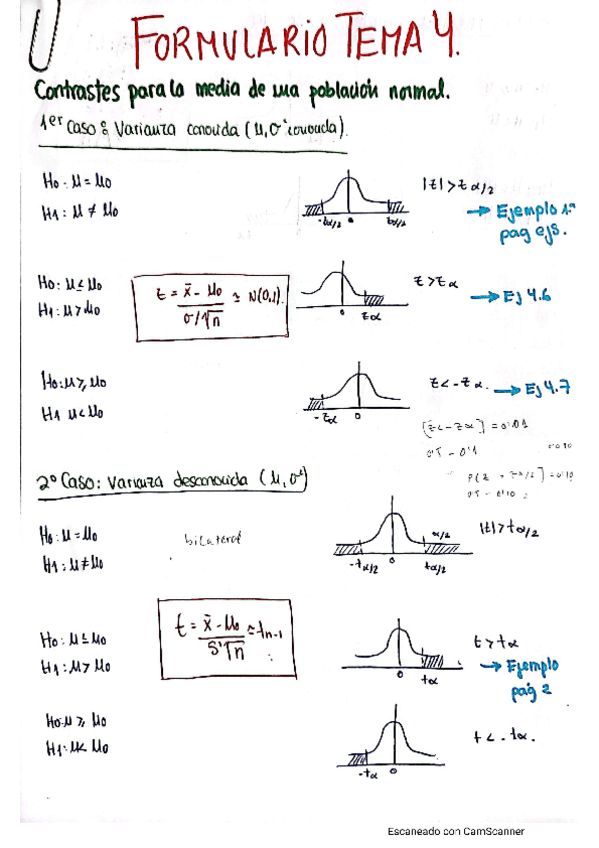 FORMULARIO TEMA 4.
Contrastes para la media de una población normal.
1er Caso: Varianza conocida (μ, σ² conocida).
H0: μ = μ0
H1: μ ≠ μ0
-zα/2 0 zα/2
|z| > zα/2
→ Ejemplo 1.
pag ejs.
H0: μ ≤ μ0
H1: μ > μ0
z = x̄ - μ0 / σ/√n ≃ N(0,1).
0 zα
z > zα
→ Ej 4.6
H0: μ ≥ μ0
H1 μ < μ0
-zα 0
z < -zα.
→ Ej 4.7
[z < -zα] = 0'01
0'5 - 0'1
0'5 - 0'10
2º Caso: Varianza desconocida (μ, σ²)
H0: μ = μ0
H1: μ ≠ μ0
bilateral
-tα/2 0 tα/2
α/2
|t| > tα/2
H0: μ ≤ μ0
H1: μ > μ0
t = x̄ - μ0 / S'√n ≃ tn-1
0 tα
t > tα
→ Ejemplo
pág 2
H0: μ ≥ μ0
H1: μ < μ0
-tα 0
t < -tα.
Escaneado con CamScanner